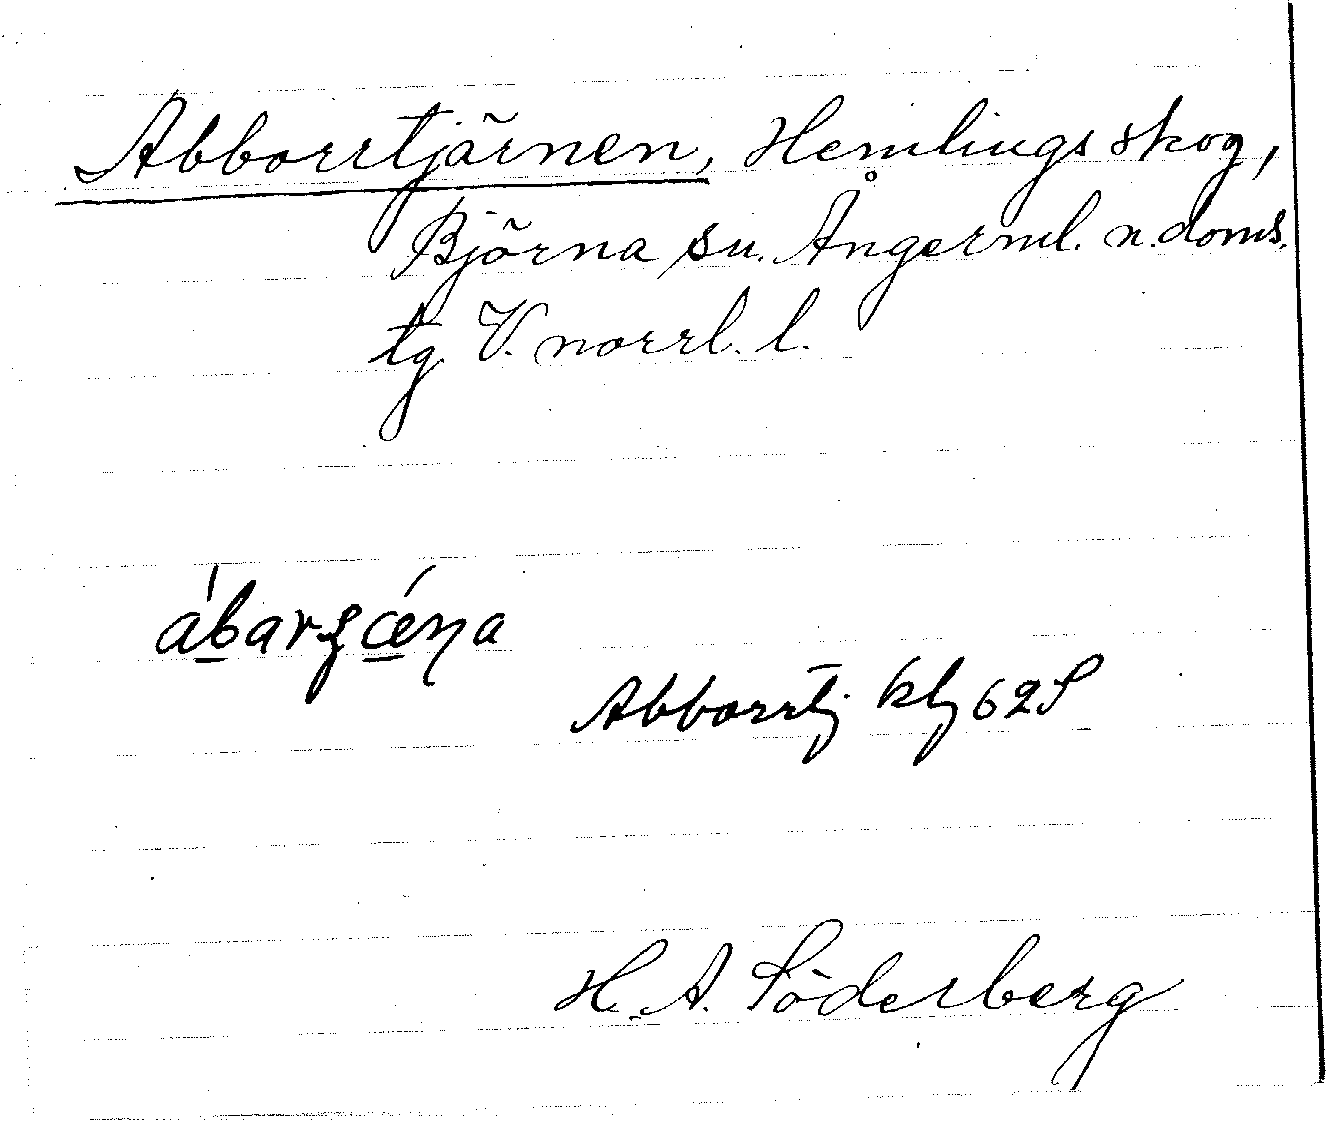 Abborrtjärnen, Hemlings skog,
Björna sn. Ångerml. n. doms.
tg. V. norrl. l.
Abborrtj klj 62 S
H. A. Söderberg